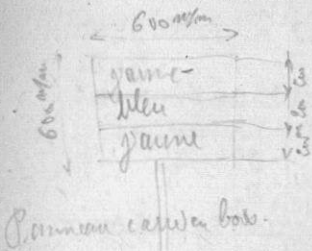 600 m/m
600 m/m
jaune
bleu
jaune
Panneau carré en bois.